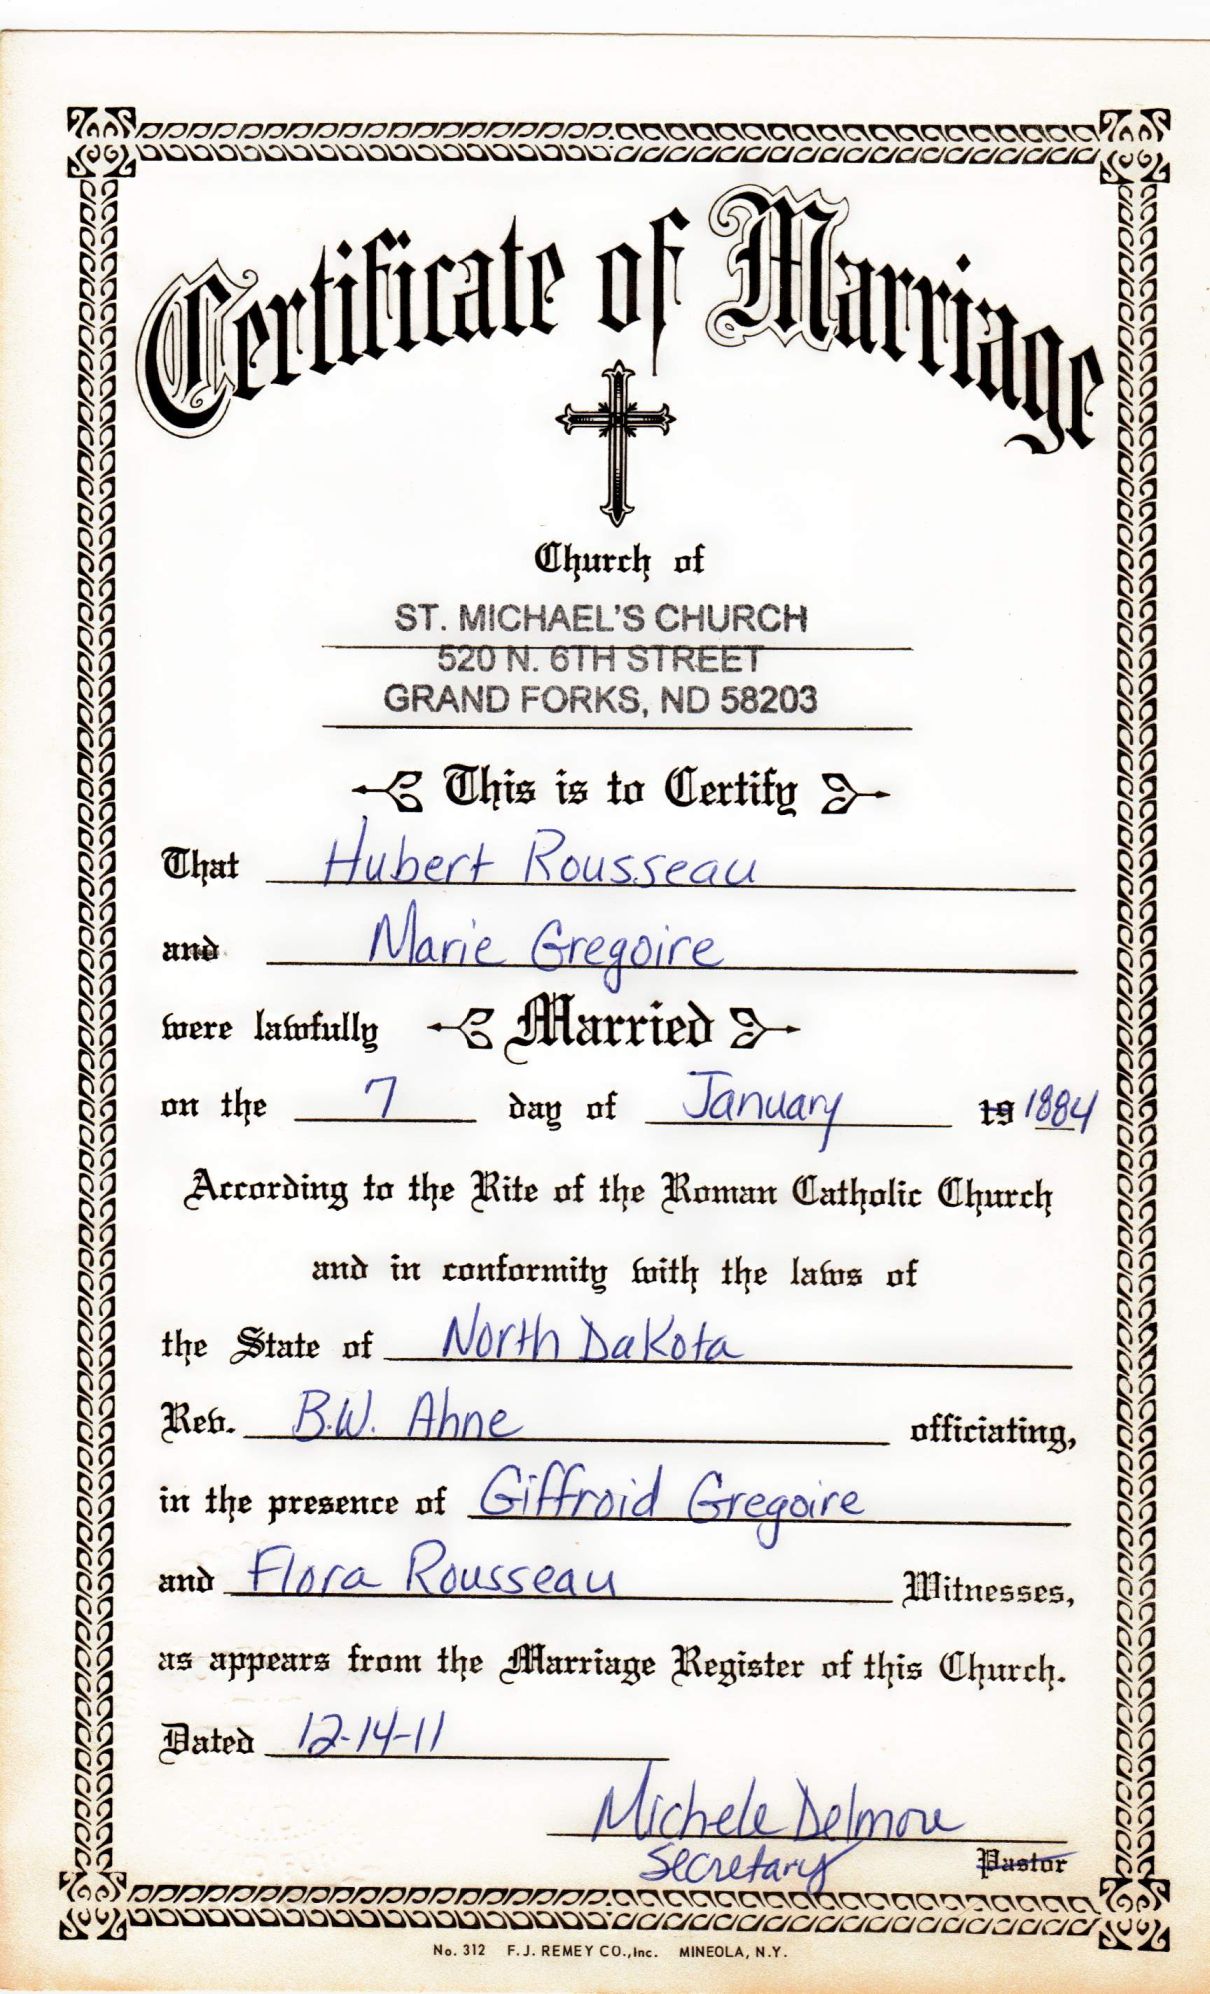 Certificate of Marriage
Church of
ST. MICHAEL'S CHURCH
520 N. 6TH STREET
GRAND FORKS, ND 58203
This is to Certify
That Hubert Rousseau
and Marie Gregoire
were lawfully Married
on the 7 day of January 19 1884
According to the Rite of the Roman Catholic Church
and in conformity with the laws of
the State of North Dakota
Rev. B.W. Ahne officiating,
in the presence of Giffroid Gregoire
and Flora Rousseau Witnesses,
as appears from the Marriage Register of this Church.
Dated 12-14-11
Michele Delmore
Secretary Pastor
No. 312 F.J. REMEY CO., Inc. MINEOLA, N.Y.